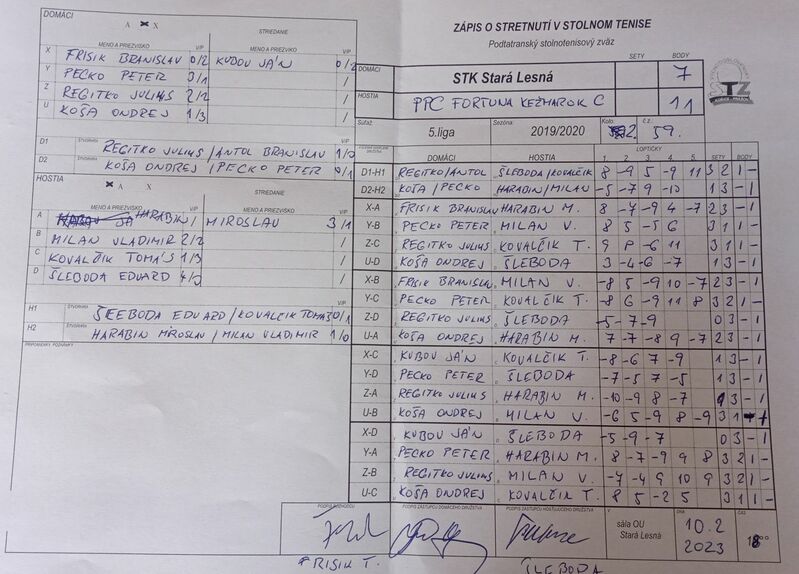 DOMÁCI
A X X
STRIEDANIE
MENO A PRIEZVISKO V/P MENO A PRIEZVISKO V/P
X FRISIK BRANISLAV 0/2 KUBOV JÁN 0/2
Y PECKO PETER 3/1 /
Z REGITKO JULIUS 2/2 /
U KOŠA ONDREJ 1/3 /
D1 ŠTVORHRA REGITKO JULIUS / ANTOL BRANISLAV 1/0
D2 ŠTVORHRA KOŠA ONDREJ / PECKO PETER 0/1
HOSTIA
X A X
STRIEDANIE
MENO A PRIEZVISKO V/P MENO A PRIEZVISKO V/P
A HARABIN / MIROSLAV 3/1
B MILAN VLADIMIR 2/2 /
C KOVALČIK TOMÁS 1/3 /
D ŠLEBODA EDUARD 4/0 /
H1 ŠTVORHRA ŠLEBODA EDUARD / KOVALČIK TOMAŠ 0/1
H2 ŠTVORHRA HARABIN MIROSLAV / MILAN VLADIMIR 1/0
PRIPOMIENKY, POZNÁMKY
ZÁPIS O STRETNUTÍ V STOLNOM TENISE
Podtatranský stolnotenisový zväz
SETY BODY
DOMÁCI STK Stará Lesná 7
HOSTIA PPC FORTUNA KEŽMAROK C 11
Súťaž: 5.liga Sezóna: 2019/2020 Kolo: 2. č.z. 59.
LOPTIČKY
DOMÁCI HOSTIA 1 2 3 4 5 SETY BODY
D1-H1 REGITKO/ANTOL ŠLEBODA/KOVALČIK 8 -9 5 -9 11 3 2 1 -
D2-H2 KOŠA / PECKO HARABIN/MILAN -5 -7 9 -10 1 3 - 1
X-A FRISIK BRANISLAV HARABIN M. 8 -7 -9 4 -7 2 3 - 1
Y-B PECKO PETER MILAN V. 8 5 -5 6 3 1 1 -
Z-C REGITKO JULIUS KOVALČIK T. 9 -6 11 3 1 1 -
U-D KOŠA ONDREJ ŠLEBODA 3 -4 -6 -7 1 3 - 1
X-B FRISIK BRANISLAV MILAN V. -8 5 -9 10 -7 2 3 - 1
Y-C PECKO PETER KOVALČIK T. -8 6 -9 11 8 3 2 1 -
Z-D REGITKO JULIUS ŠLEBODA -5 -7 -9 0 3 - 1
U-A KOŠA ONDREJ HARABIN M. 7 -7 -8 9 -7 2 3 - 1
X-C KUBOV JÁN KOVALČIK T. -8 -6 7 -9 1 3 - 1
Y-D PECKO PETER ŠLEBODA -7 -5 7 -5 1 3 - 1
Z-A REGITKO JULIUS HARABIN M. -10 -9 8 -7 1 3 - 1
U-B KOŠA ONDREJ MILAN V. -6 5 -9 8 -9
X-D KUBOV JÁN ŠLEBODA -5 -9 -7 0 3 - 1
Y-A PECKO PETER HARABIN M. 8 -7 -9 9 8 3 2 1 -
Z-B REGITKO JULIUS MILAN V. -7 -4 9 10 9 3 2 1 -
U-C KOŠA ONDREJ KOVALČIK T. 8 5 -2 5 3 1 1 -
PODPIS ROZHODCU PODPIS ZÁSTUPCU DOMÁCEHO DRUŽSTVA PODPIS ZÁSTUPCU HOSŤUJÚCEHO DRUŽSTVA V DŇA ČAS
sála OU
Stará Lesná
10.2
2023
18:00
FRISIK T. ŠLEBODA